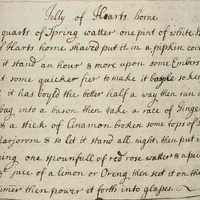 Jelly of Hearts horne
quarts of Spring watter one pint of white
of Harts horne shaved put it in a pipkin
it stand an hour & more upon some Embers
some quicker fier to make it boyle so
it has boyld the better half a way then run
bag into a bason then take a race of Ginger
& a stick of Cinamon broken some tops of
Marjorom & so let it stand all night, then put
one spoonfull of red rose watter &
juce of a limon or Oreng then set it on the
simer then power it forth into glases